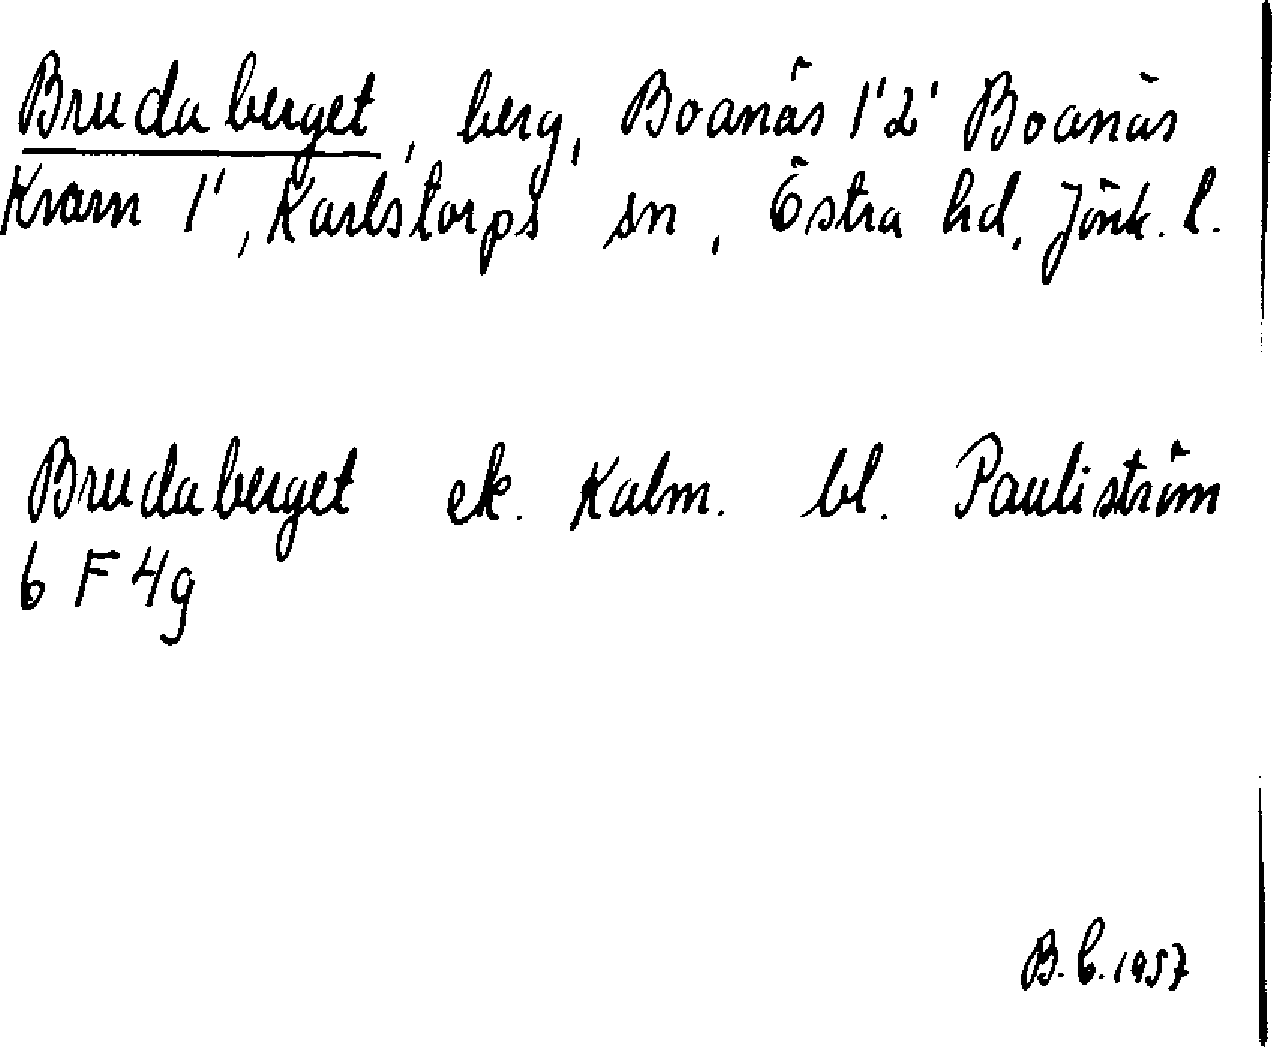 Brudaberget, berg, Boanäs 1'2' Boanäs
Kvarn 1', Karlstorps sn, Östra hd, Jönk. l.
Brudaberget ek. Kalm. bl. Pauliström
6 F 4g
B. b. 1957